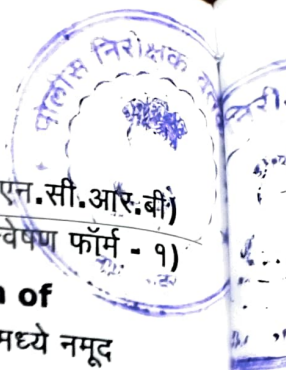 पोलीस निरीक्षक
एन.सी.आर.बी)
न्वेषण फॉर्म - १)
of
मध्ये नमूद